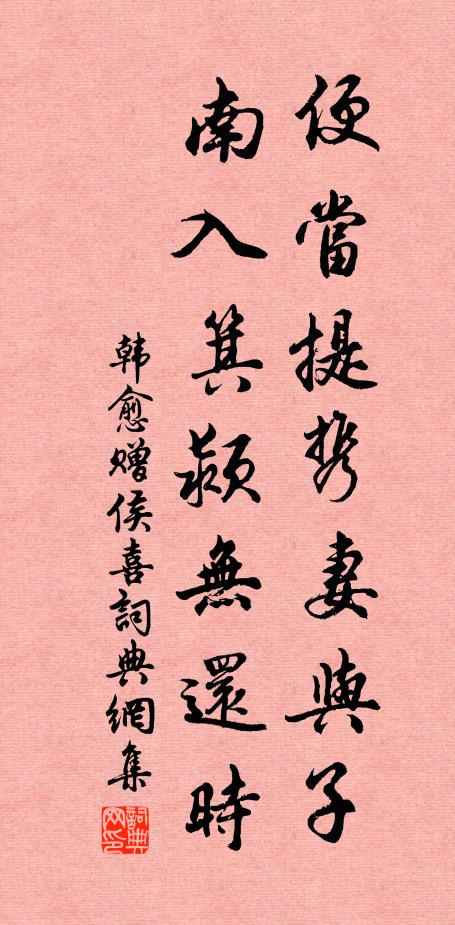 便當提携妻與子
南入箕潁無還時
韩愈赠侯喜詞典網集
詞典网印